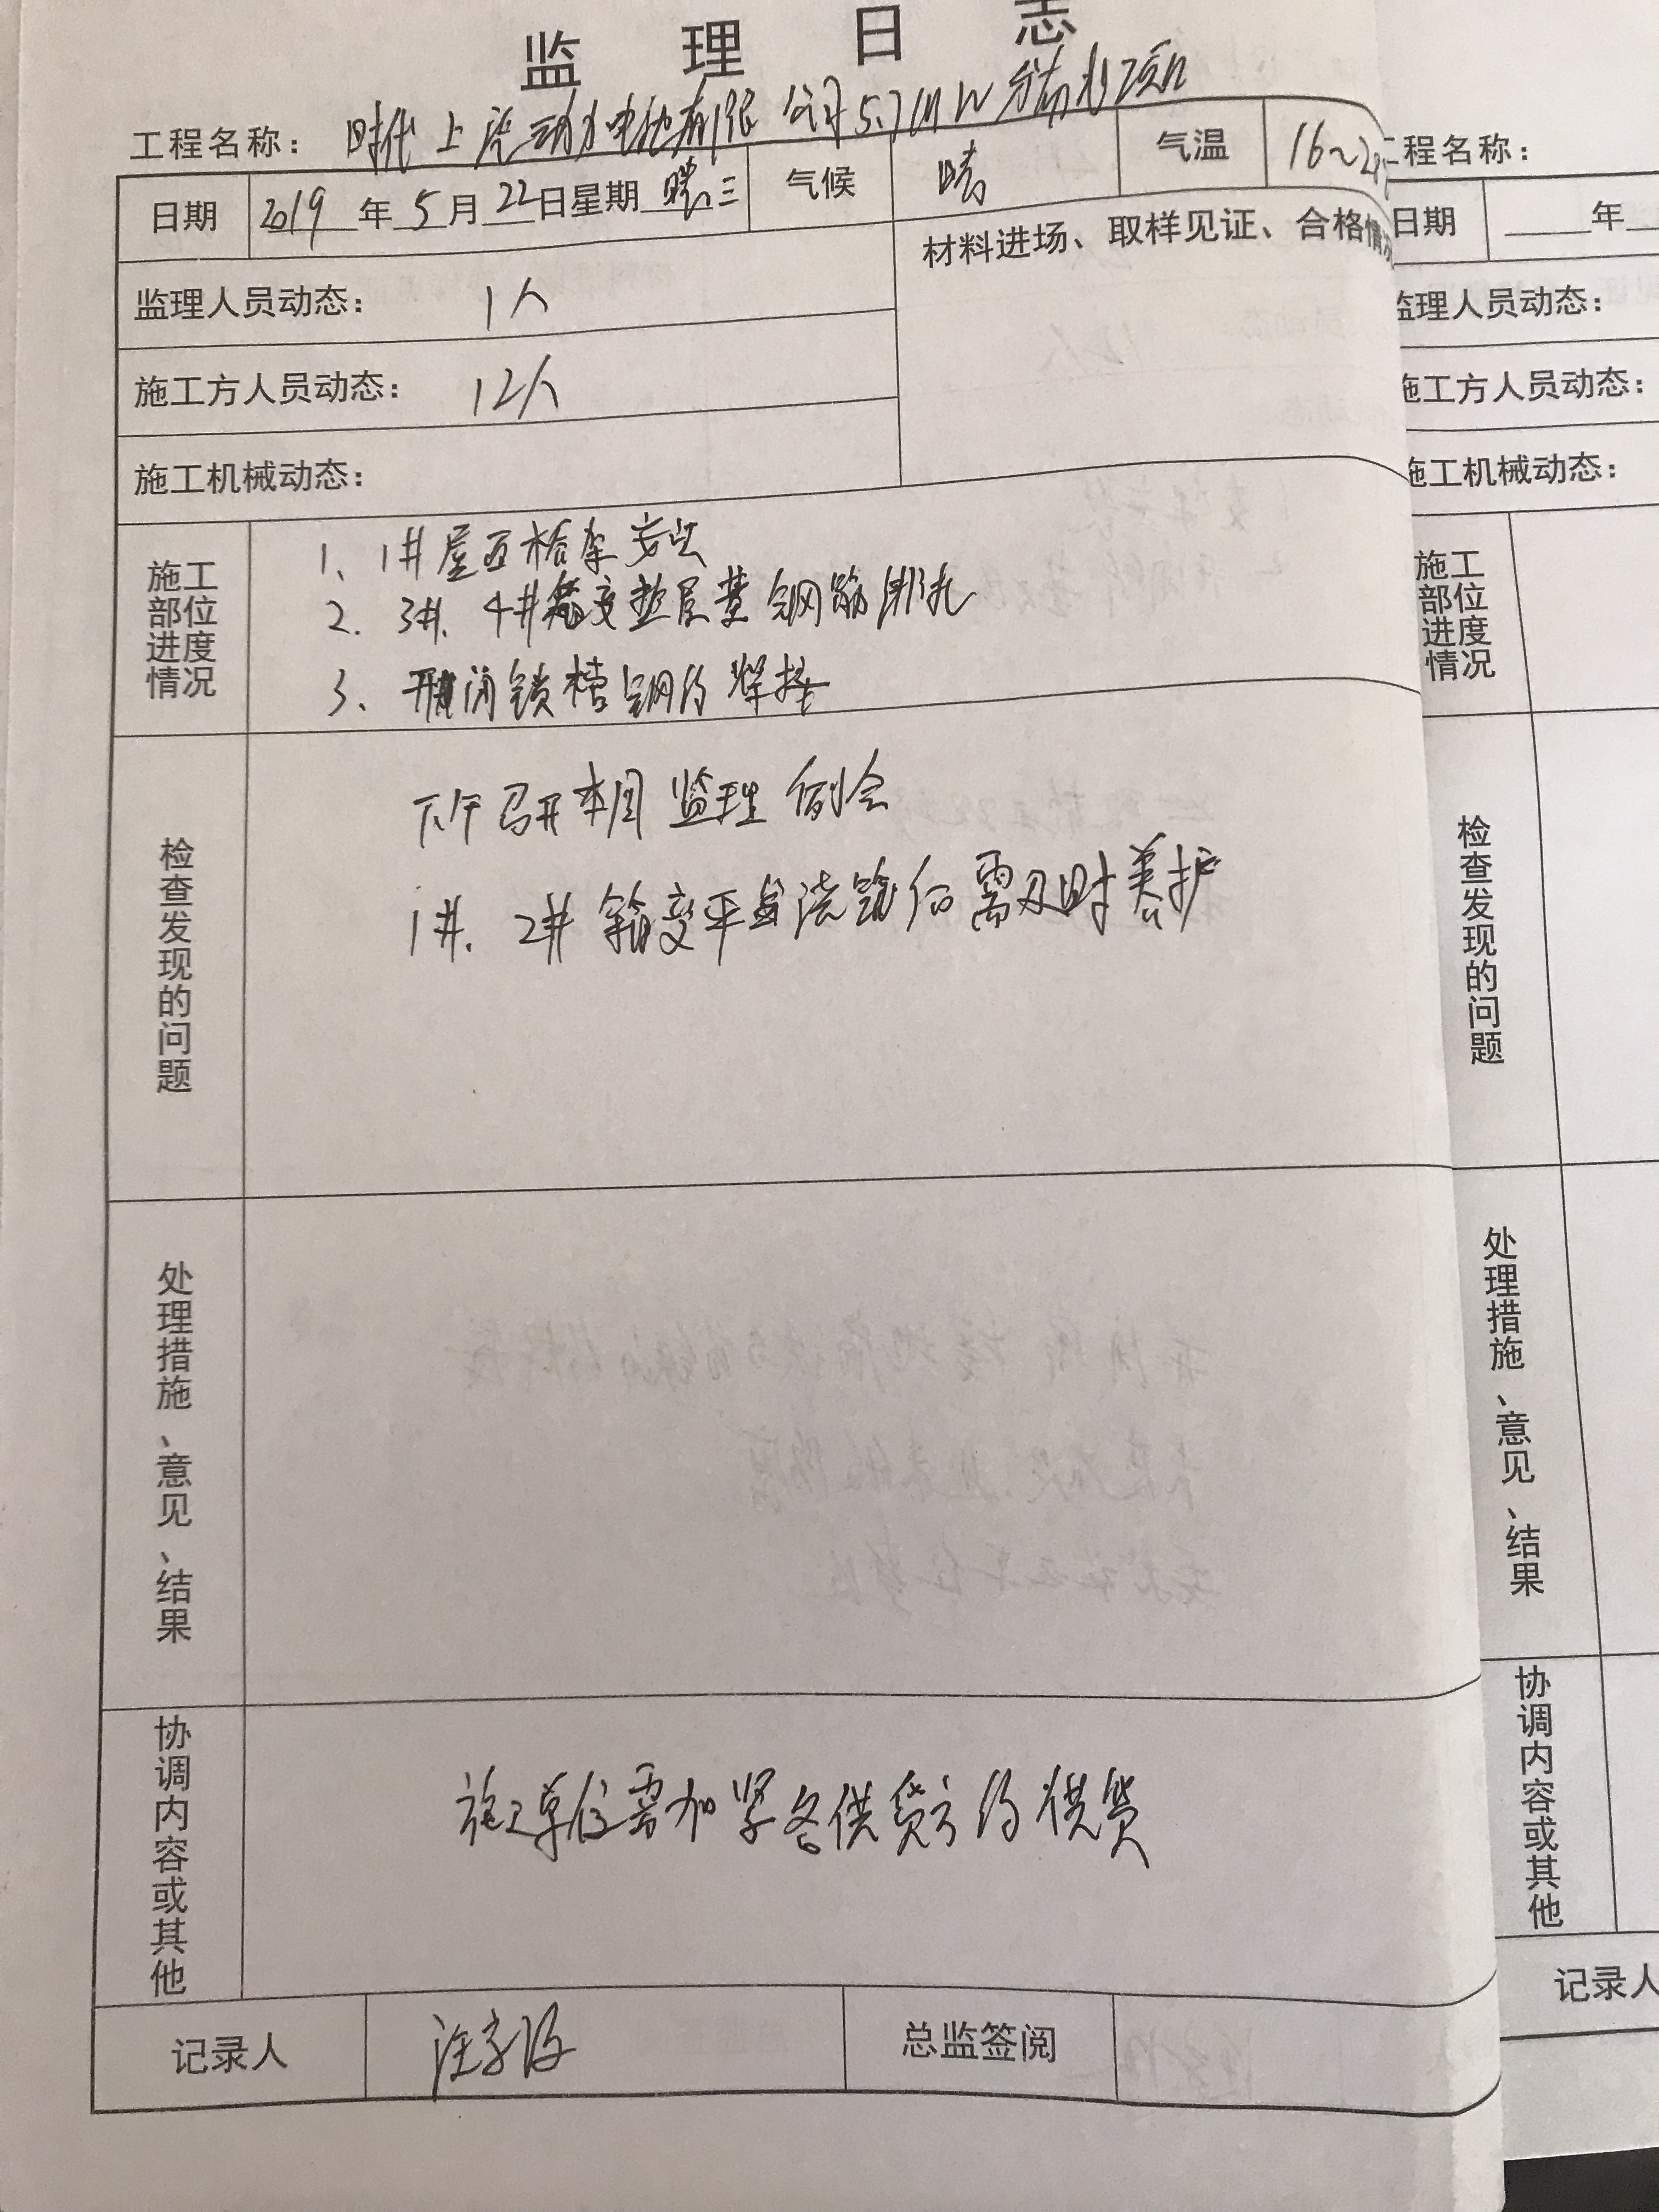 监理日志
工程名称：时代上汽动力电池有限公司5.7MW分布式项目
日期 2019年5月22日星期三 气候 晴 气温 16~28
监理人员动态： 1人
材料进场、取样见证、合格情况
施工方人员动态： 12人
施工机械动态：
施工部位进度情况
1、1#屋面桥架安装
2、3#、4#箱变垫层基 钢筋绑扎
3、 闭锁槽钢的焊接
检查发现的问题
下午召开本周监理例会
1#、2#箱变平台浇筑后需及时养护
处理措施、意见、结果
协调内容或其他
施工单位需加紧各供货方的供货
记录人 汪 总监签阅
程名称：
日期 年
监理人员动态：
施工方人员动态：
施工机械动态：
施工部位进度情况
检查发现的问题
处理措施、意见、结果
协调内容或其他
记录人